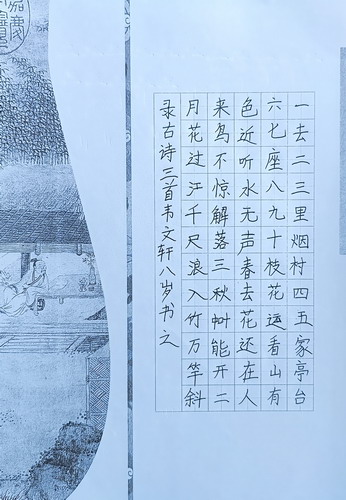 一去二三里烟村四五家亭台
六七座八九十枝花远看山有
色近听水无声春去花还在人
来鸟不惊解落三秋树能开二
月花过江千尺浪入竹万竿斜
录古诗三首韦文轩八岁书之
嘉慶